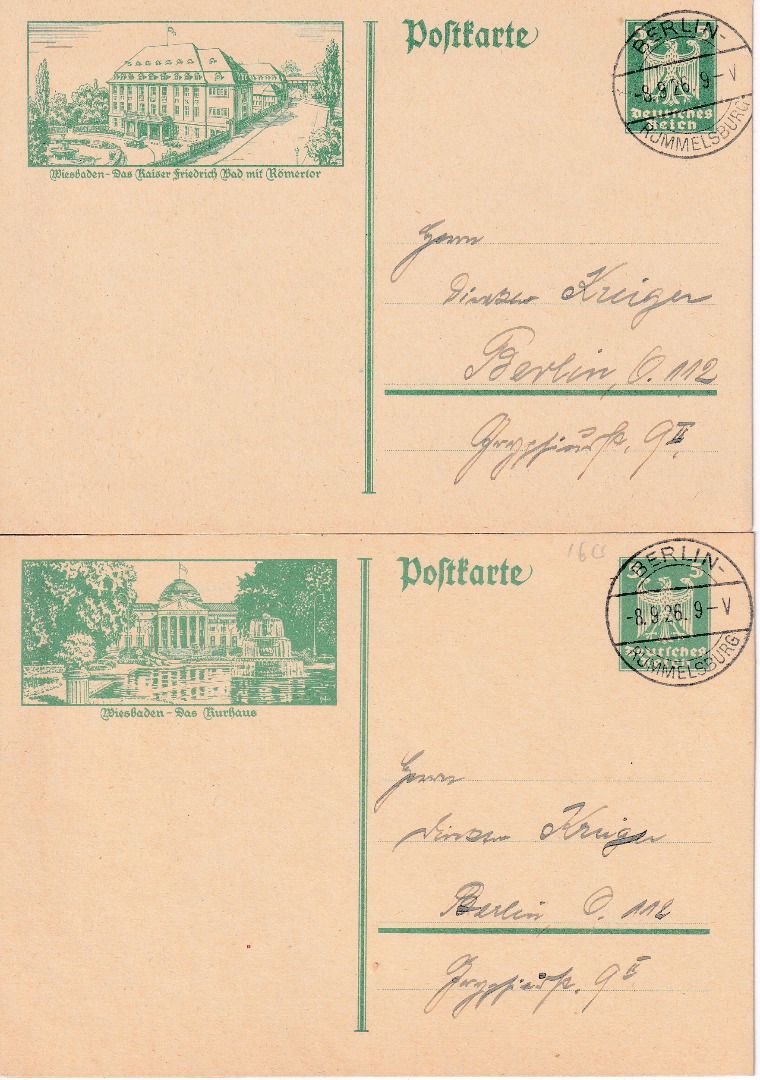 Postkarte
5 5
Deutsches
Reich
BERLIN-
-8.9.26. 9-V
RUMMELSBURG
Wiesbaden - Das Kaiser Friedrich Bad mit Römertor
Herrn
Direktor Krüger
Berlin, O. 112
Gryphiusstr. 9 II
Postkarte
5 5
Deutsches
Reich
BERLIN-
-8.9.26. 9-V
RUMMELSBURG
Wiesbaden - Das Kurhaus
Herrn
Direktor Krüger
Berlin, O. 112
Gryphiusstr. 9 II